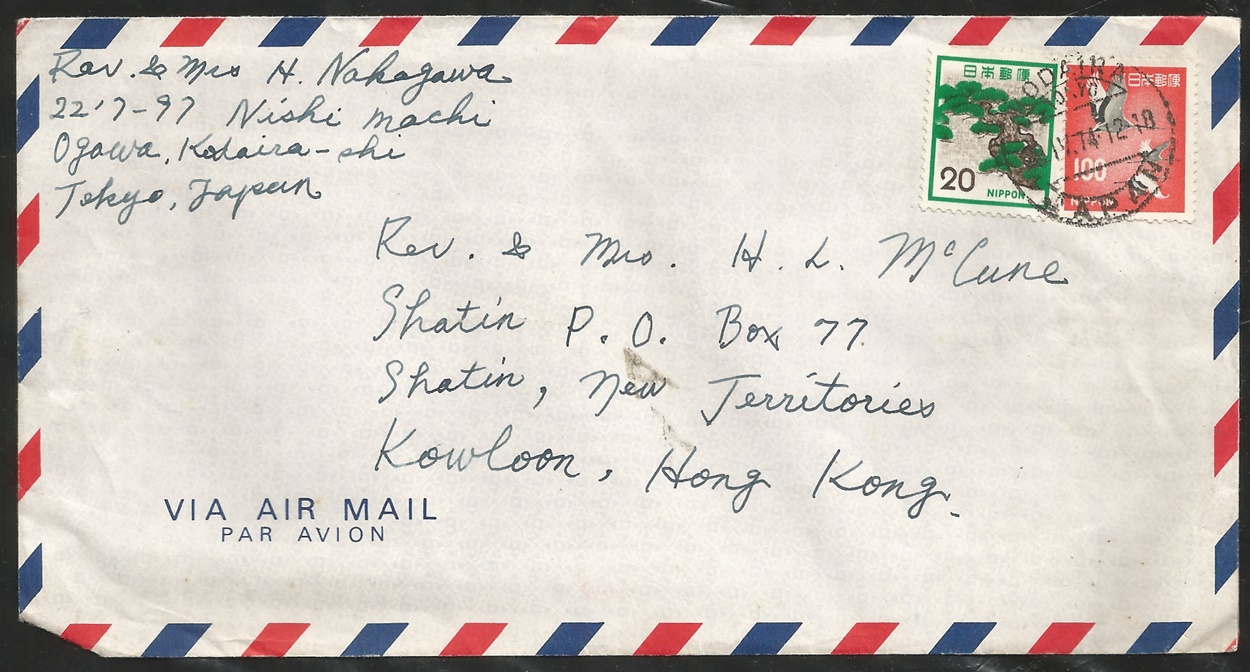 Rev. & Mrs H. Nakagawa
22'7-97 Nishi machi
Ogawa, Kodaira-shi
Tokyo, Japan
日本郵便
20
NIPPON
日本郵便
100
ODAIRA
.74.12.18
JAPAN
Rev. & Mrs. H. L. McCune
Shatin P. O. Box 77
Shatin, New Territories
Kowloon, Hong Kong.
VIA AIR MAIL
PAR AVION